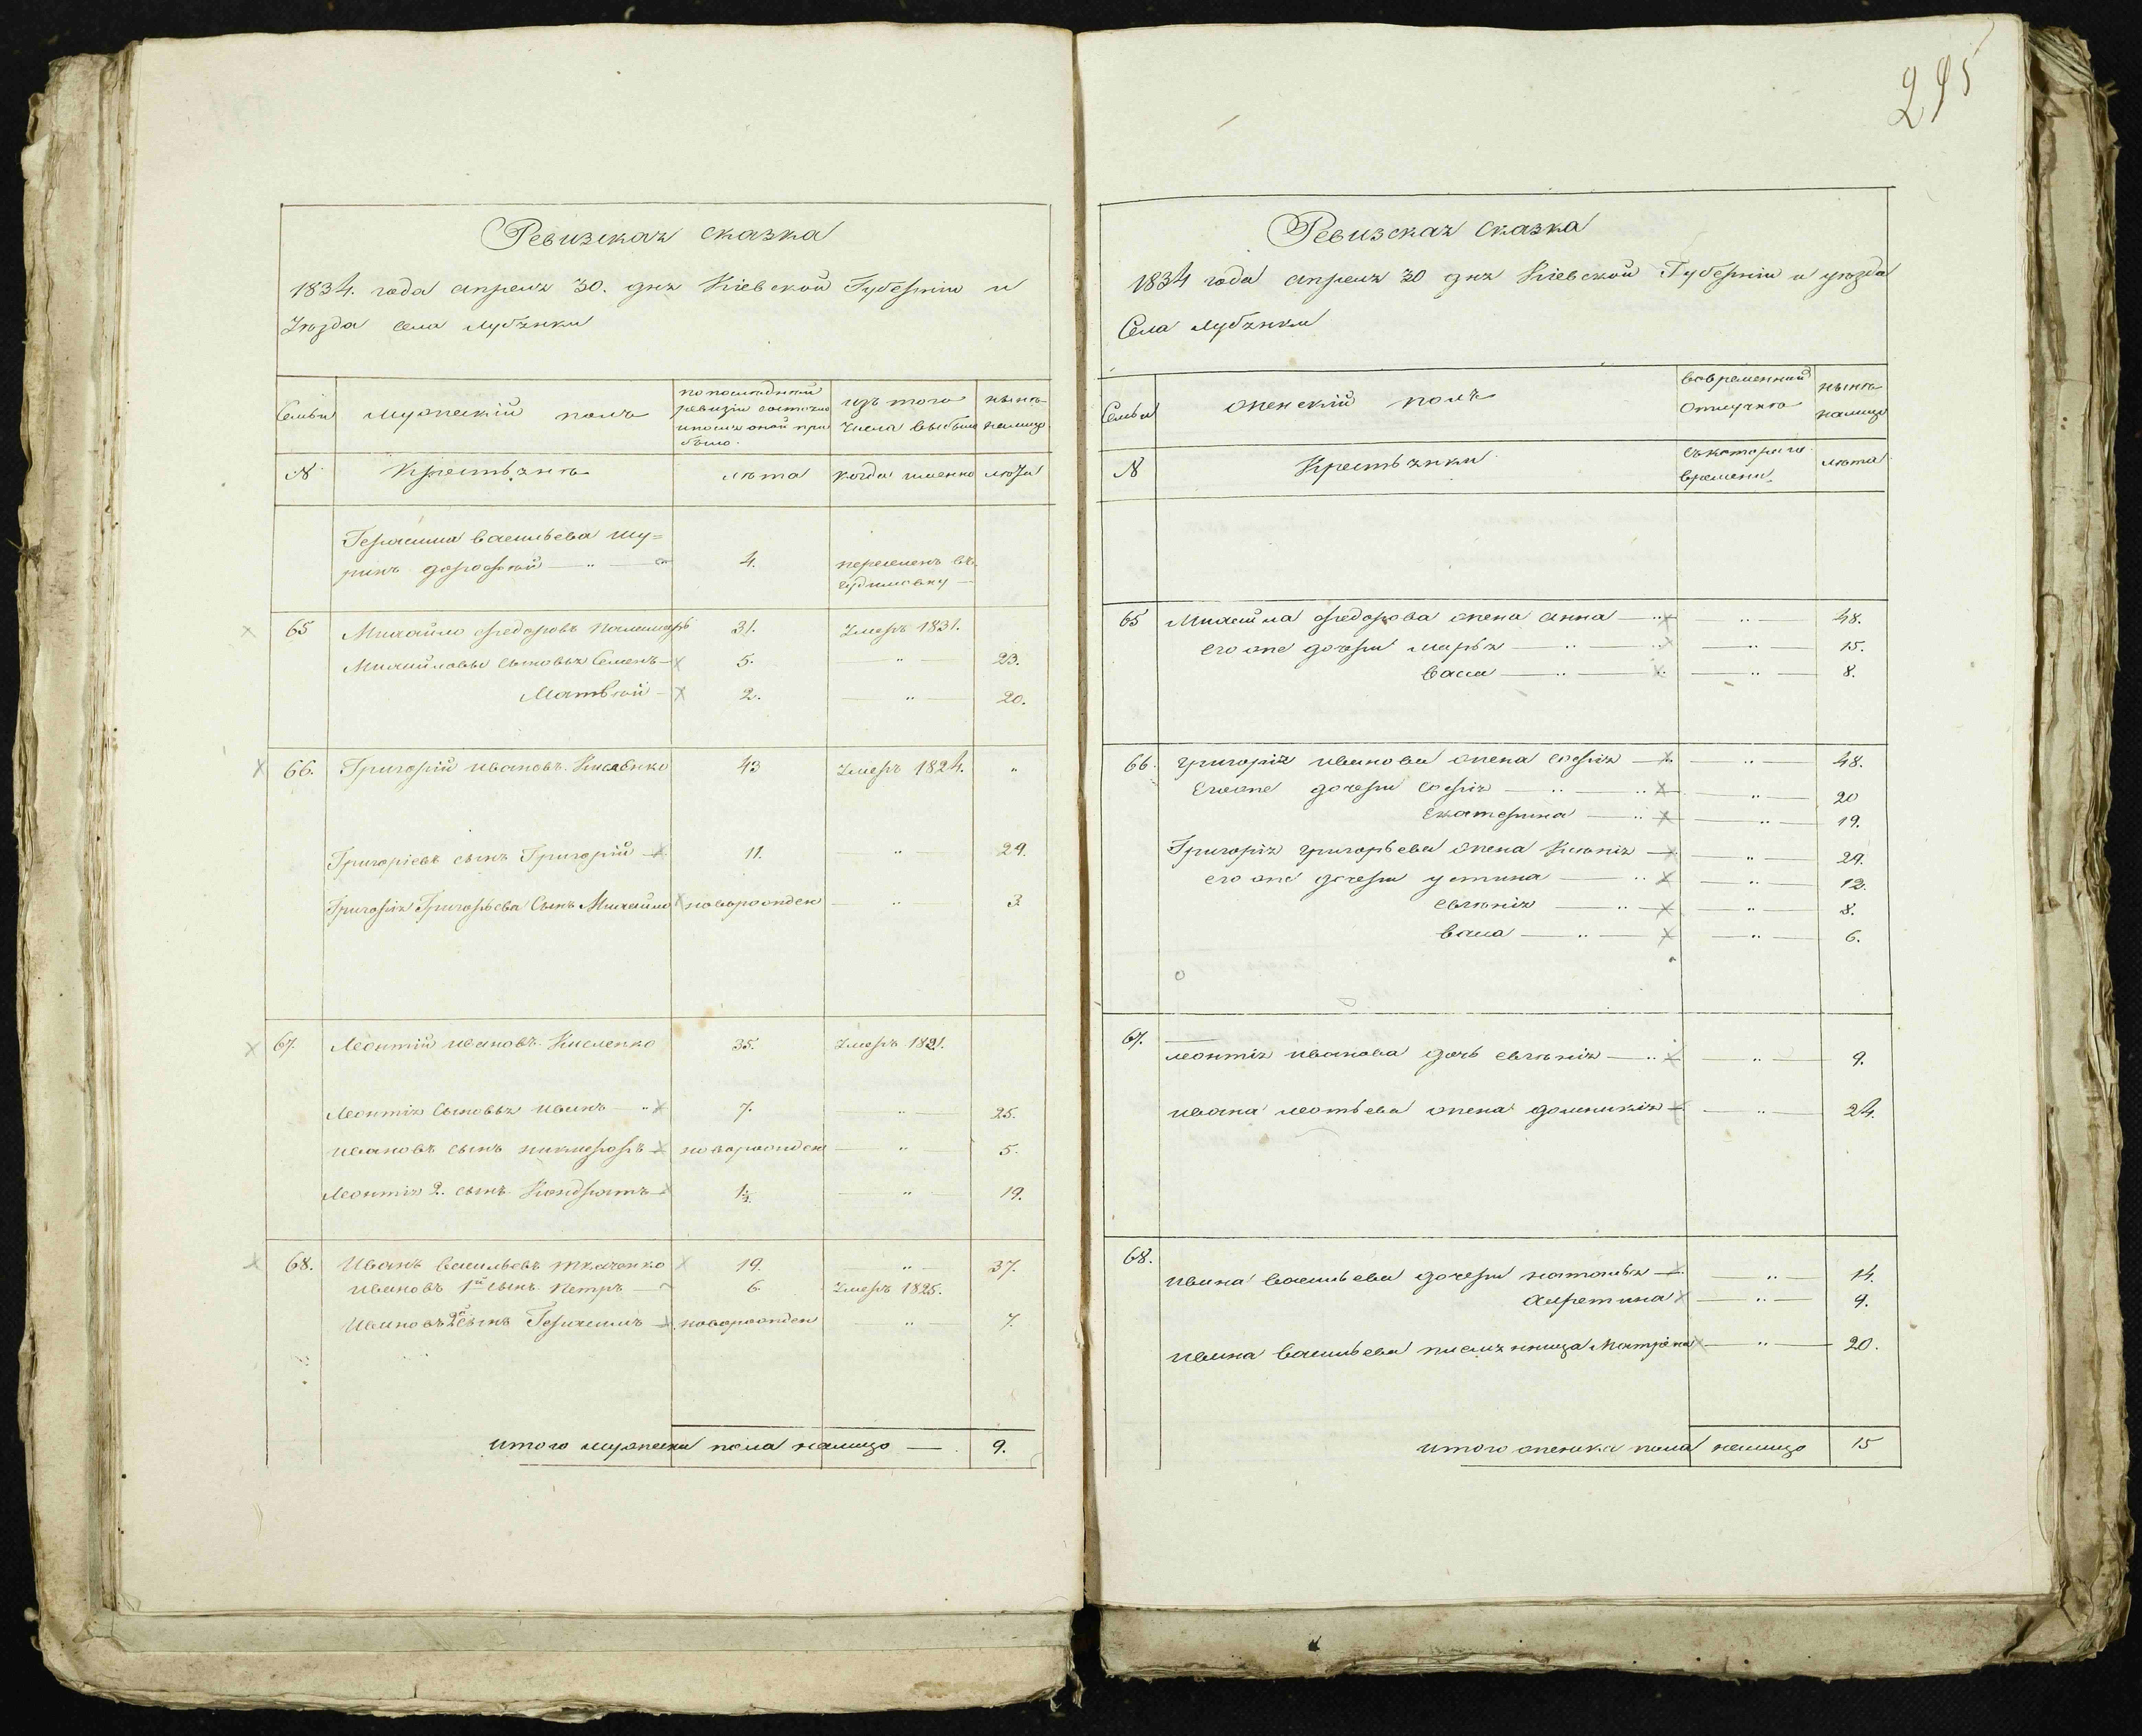 295
Ревизская сказка
1834. года апреля 30. дня Кіевской Губерніи и
Уѣзда села Лубянки
Семьи
мужескій полъ
по последней
ревизіи состояло
и после оной при
было.
изъ того
числа выбыло
нынѣ
налицо
№
Крестьянѣ
лѣта
когда именно
лѣта
Герасима Васильева шу=
ринъ дорофей — " —
4.
65
Михайло Федоровъ Паламарь
31.
Умеръ 1831.
Михайловы сыновья Семенъ —
5.
— " —
23.
Матвѣй —
2.
— " —
20.
66.
Григорій Ивановъ Кислѣнко
43
Умеръ 1824.
"
Григоріевъ сынъ Григорій —
11.
— " —
29.
Григорія Григорьева Сынъ Михайло
новорожден
— " —
3.
67.
Леонтій Ивановъ Кисленко
35.
Умеръ 1821.
Леонтія сыновья Иванъ — "
7.
"
25.
Ивановъ сынъ никифоръ —
новорожден
— " —
5.
Леонтія 2. сынъ Кондратъ —
1/2.
"
19.
68.
Иванъ Васильевъ Ткаченко
19.
— " —
37.
Ивановъ 1й сынъ Петръ —
6.
Умеръ 1825.
Ивановъ 2й сынъ Герасимъ —
новорожден
— " —
7.
итого мужеска пола налицо — .
9.
Ревизская Сказка
1834 года апреля 30 дня Кіевской Губерніи и уѣзда
Села Лубянки
Семьи
женскій полъ
вовременной
отлучкѣ
нынѣ
налицо
№
Крестьянки
съкотораго
времени
лѣта
65
Михайла Федорова жена Анна — "
— " —
48.
его же дочери Марья — " —
— " —
15.
Васса — " —
— " —
8.
66.
Григорія Иванова жена Софія —
— " —
48.
Его же дочери Софія — " —
— " —
20
Екатерина — "
— " —
19.
Григорія Григорьева жена Ксенія —
— " —
29.
его же дочери устина — "
— " —
12.
Евгенія — " —
— " —
8.
Васса — " —
— " —
6.
67.
Леонтія Иванова дочь Евгенія — "
— " —
9.
Ивана Леонтьева жена Домникія —
— " —
24.
68.
Ивана Васильева дочери наталья —
— " —
14.
— " —
9.
Ивана Васильева племянница Матрена
— " —
20.
итого женска пола налицо
15